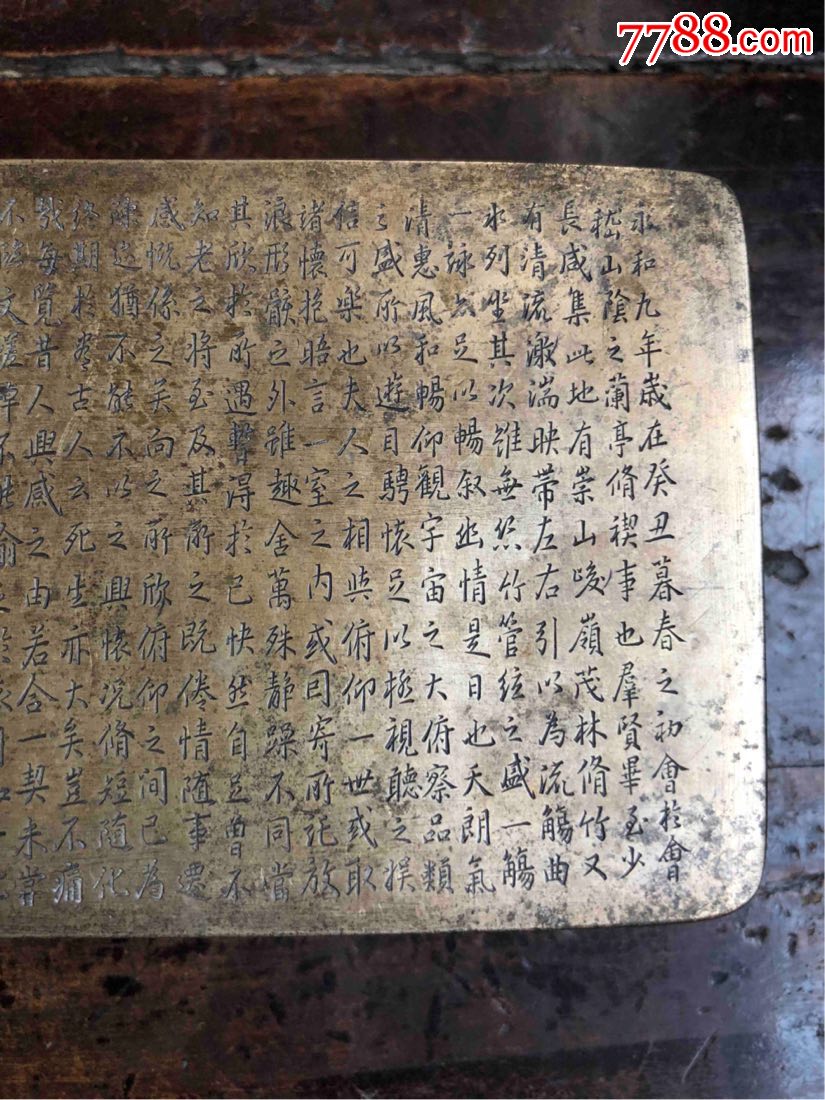 7788.com
永和九年歲在癸丑暮春之初會於會
嵇山陰之蘭亭脩禊事也羣賢畢至少
長咸集此地有崇山峻嶺茂林脩竹又
有清流激湍映帶左右引以為流觴曲
水列坐其次雖無絲竹管弦之盛一觴
一詠亦足以暢叙幽情是日也天朗氣
清惠風和暢仰觀宇宙之大俯察品類
之盛所以遊目騁懷足以極視聽之娛
信可樂也夫人之相與俯仰一世或取
諸懷抱晤言一室之內或因寄所託放
浪形骸之外雖趣舍萬殊靜躁不同當
其欣於所遇暫得於己快然自足曾不
知老之將至及其所之既倦情隨事遷
感慨係之矣向之所欣俯仰之間已為
陳迹猶不能不以之興懷況脩短隨化
終期於盡古人云死生亦大矣豈不痛
哉每覽昔人興感之由若合一契未嘗
不臨文嗟悼不能喻之於